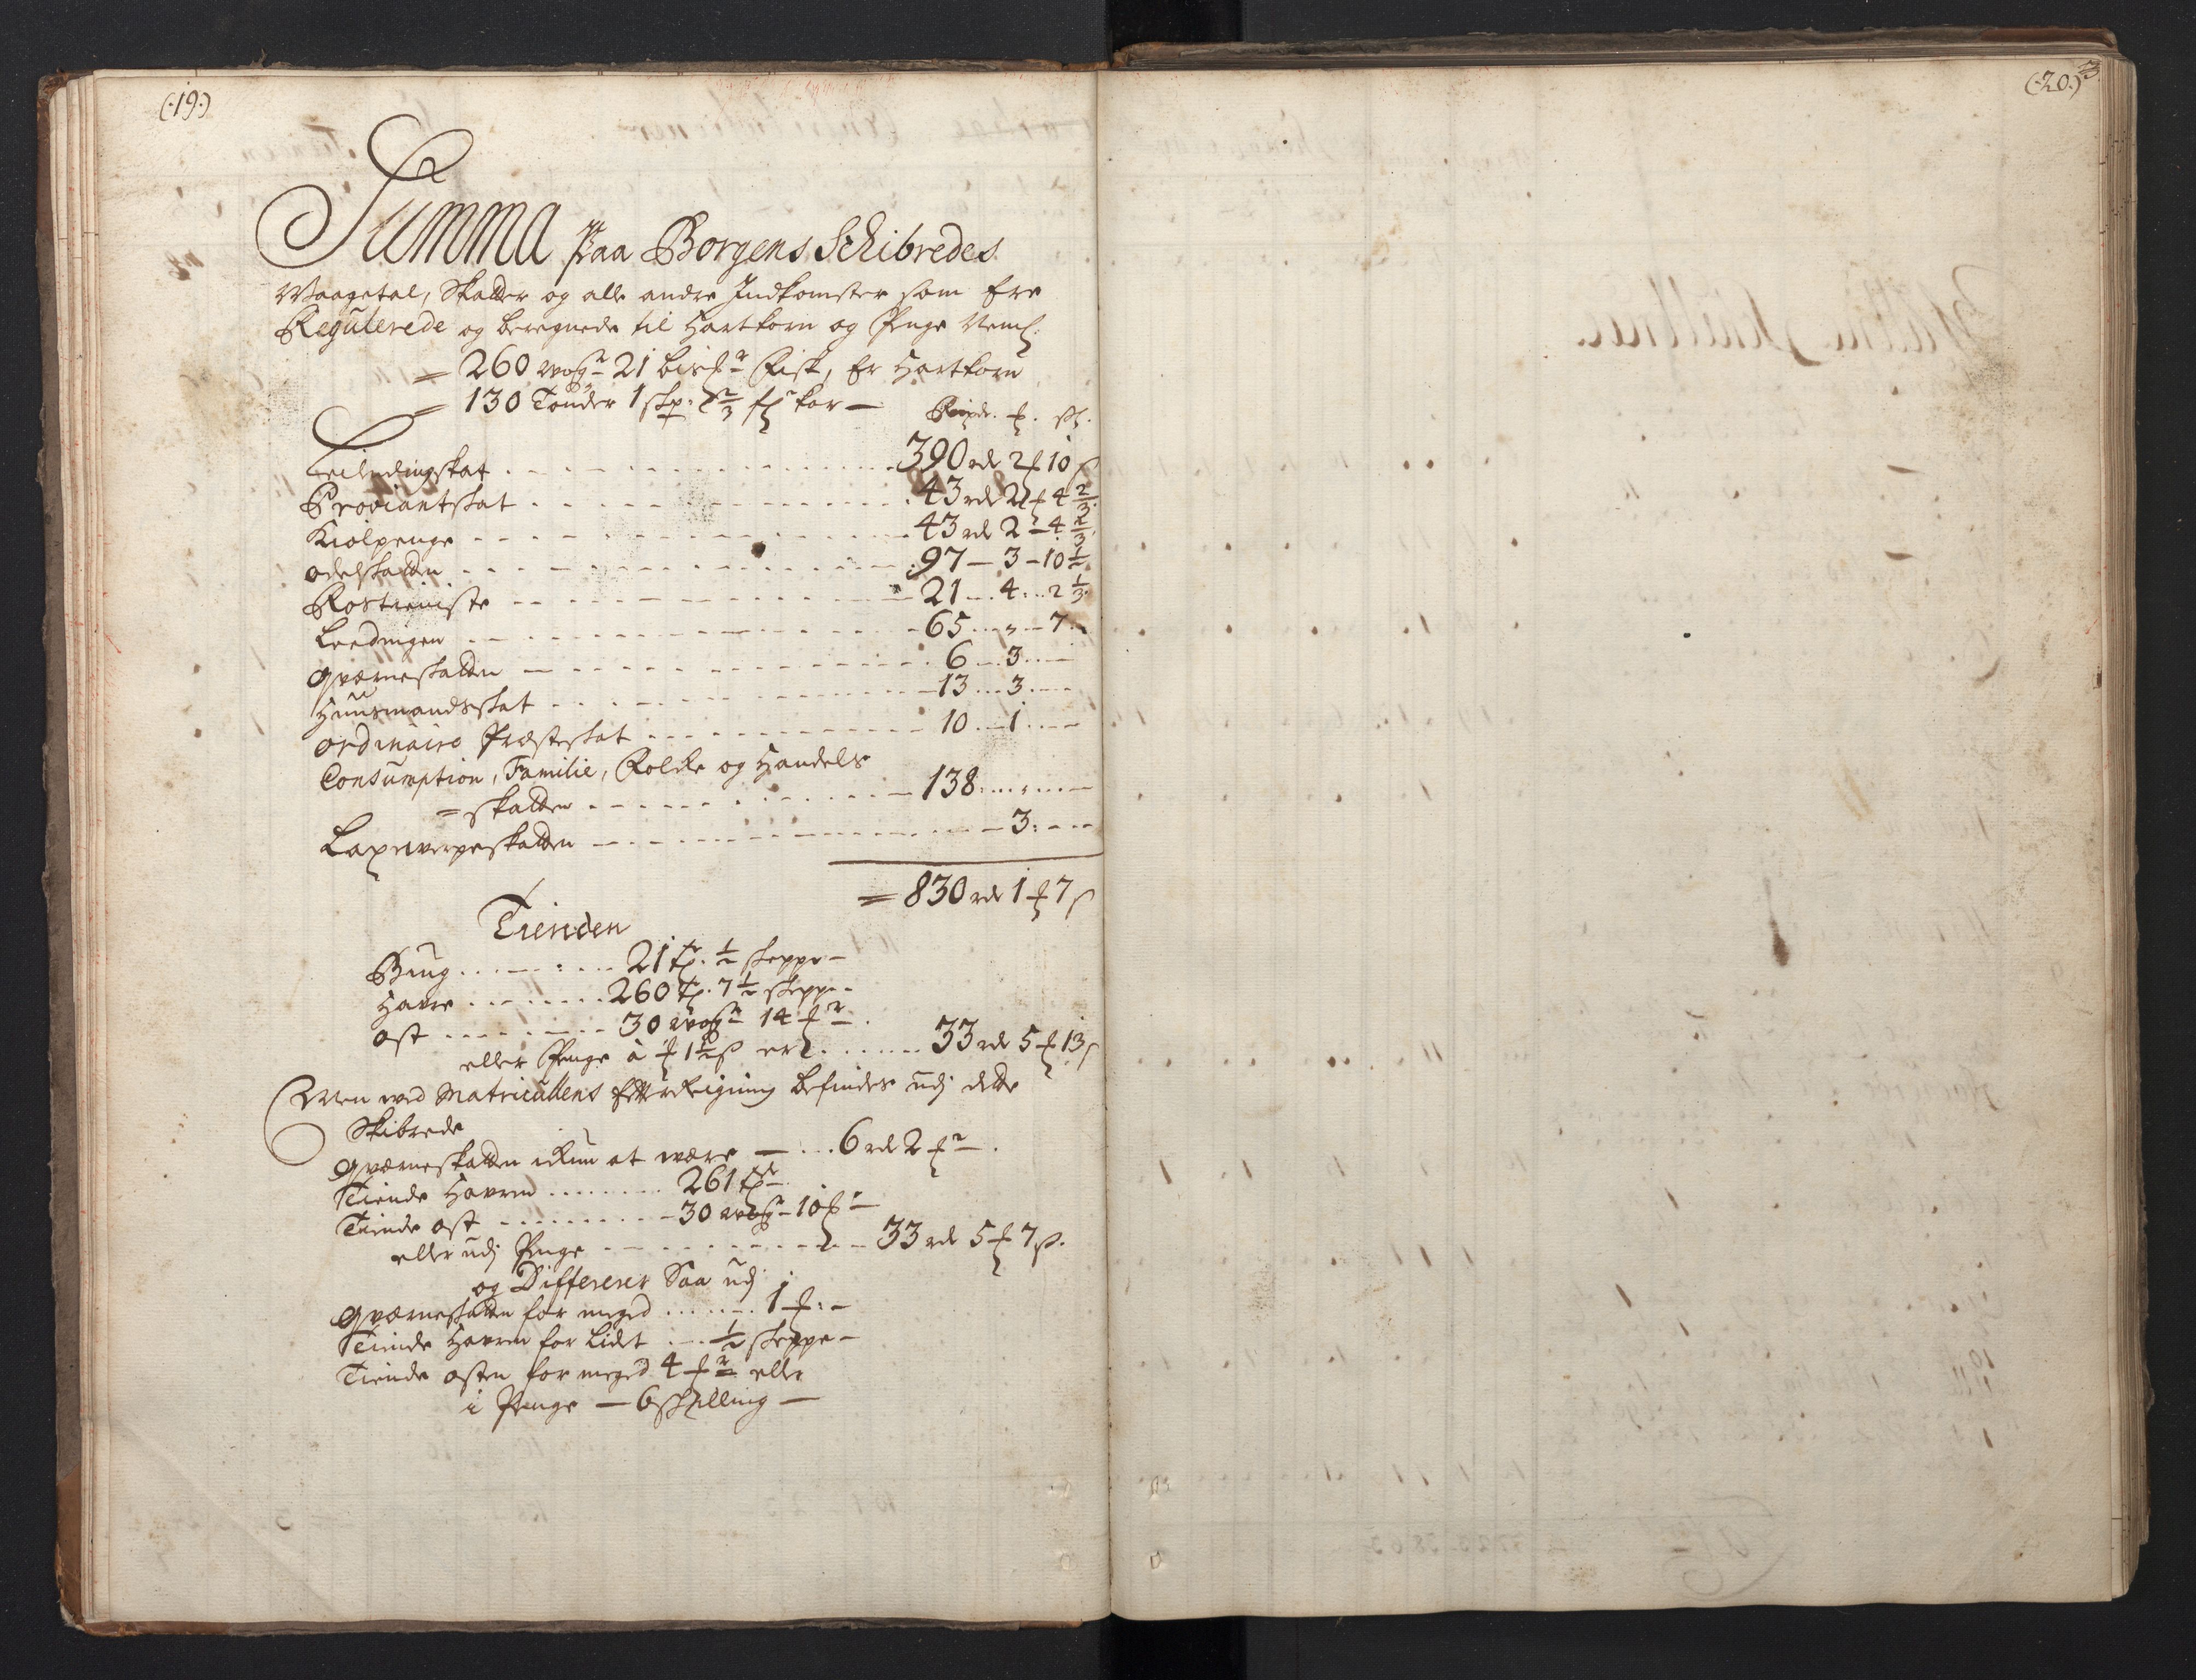 (:19:)
Summa Paa Borgens Schibredes
Waagetal, Skatter og alle andre Indkomster som Ere
Regulerede og beregnede til Hartkorn og Penge Neml:
= 260 wog 21 Fisk, Er Hartkorn
= 130 Tønder 1 skp: 2/3 kar —
Rixdr. sh.
Leilendingskat 390 rd 2 10 s
Proviantskat 43 rd 2 4 2/3
Kiolpenge 43 rd 2 - 4 2/3
Odelskatten 97 — 3 - 10 1/2
Rostieniste 21 4 2 1/3
Leedingen 65 „ 7
Qværneskatten 6 3
Huusmandsskat 13 3
Ordinaire Præsteskat 10 1
Consumption, Familie, Folke og Handels
= skatten 138
Laxewerpeskatten 3
= 830 rd 1 7 s
Tienden
Biug 21 tr. 1/2 skeppe
Havre 260 tr. 7 1/2 skeppe
Ost 30 wog 14
eller Penge à 1 1/2 s er 33 rd 5 13 s
Men wed Matriculens Efterreigning befindes udj dette
Skibrede
Qværneskatten ickun at være — 6 rd 2
Tiende Havren 261
Tiende Ost 30 wog 10
eller udj Penge 33 rd 5 7 s.
og Differerer Saa udj
Qværneskatten for meget 1
Tiende Havren for Lidet 1/2 skeppe
Tiende Osten for meget 4 eller
i Penge — 6 skilling —
(:20:)